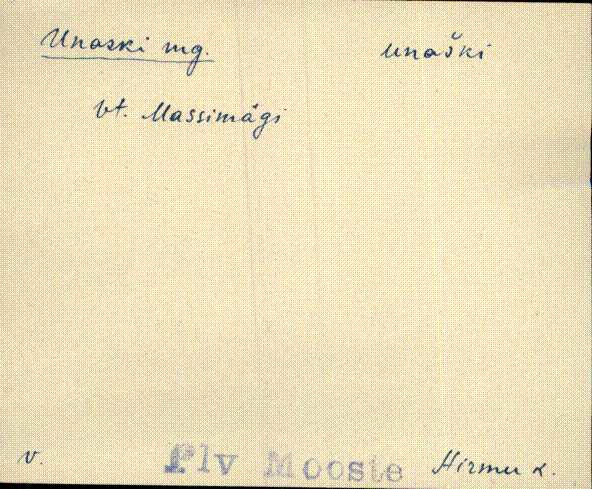 Unaski mg. unaški
vt. Massimägi
v. Plv Mooste Hirmu k.